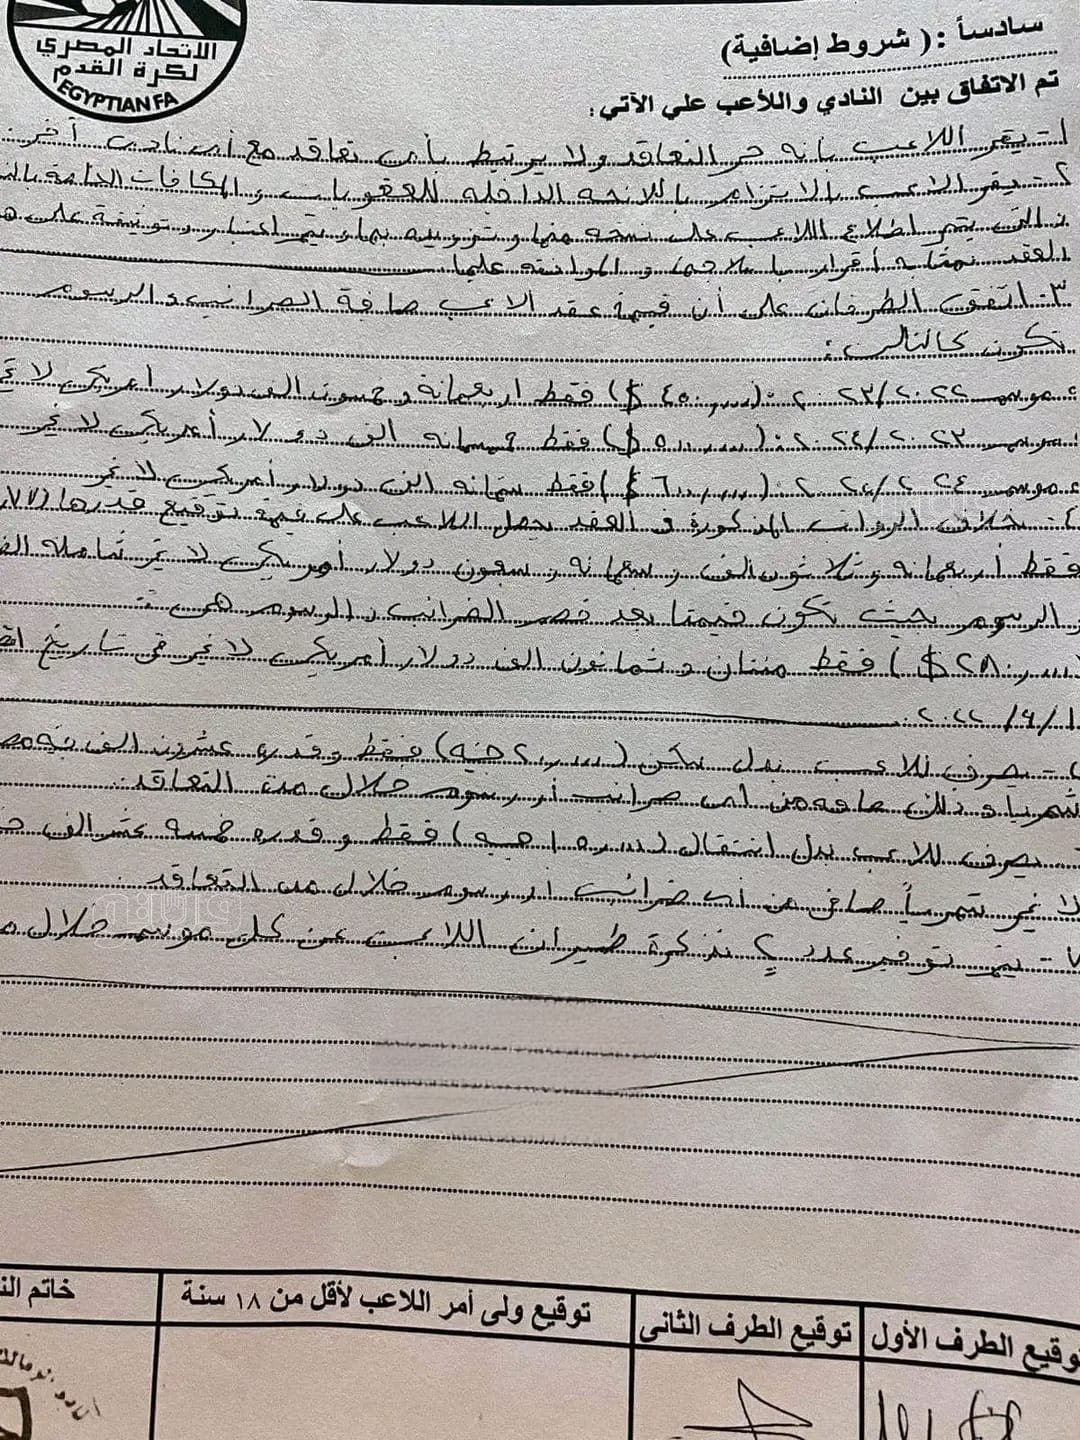 الاتحاد المصري
لكرة القدم
EGYPTIAN FA
سادساً : ( شروط إضافية )
تم الاتفاق بين النادي واللأعب علي الآتي :
١- يقر اللاعب بأنه حر التعاقد ولا يرتبط بأي تعاقد مع أى نادى آخر
٢- يقر الاعب بالالتزام باللائحه الداخله للعقوبات و المكافات الخاصة
التى يتم اطلاع اللاعب على نسخه منها و تزويده بها و يتم اعتبار توقيعة على
العقد بمثابه أقرار باستلامها و الموافقه عليها
٣- اتفق الطرفان على أن قيمة عقد الاعب صافة الضرائب و الرسوم
تكون كالتالى :
موسم ٢٠٢٢/٢٠٢٣ : (٤٥٠,٠٠٠ $) فقط اربعمائة و خمسون الف دولار أمريكى لا
موسم ٢٠٢٣/٢٠٢٤ : (٥٠٠,٠٠٠ $) فقط خمسمائه الف دولار أمريكى لا غير
موسم ٢٠٢٤/٢٠٢٥ : (٦٠٠,٠٠٠ $) فقط ستمائه الف دولار أمريكى لا غير
٤- بخلاف الرواتب المذكورة فى العقد يحصل اللاعب على قيمة توقيع قدرها
فقط أربعمائه و ثلاثون الف و سبعمائه و سبعون دولار أمريكى لا غير شامله
و الرسوم بحيث تكون قيمتها بعد خصم الضرائب و الرسوم هى :
٢٨٠,٠٠٠ $ ) فقط مئتان و ثمانون الف دولار أمريكى لا غير فى تاريخ
٢٠٢٢
يصرف للاعب بدل سكن (٢٠,٠٠٠ جنيه) فقط و قدره عشرون الف جنيه
شهريا و ذلك صافه من أى ضرائب أو رسوم خلال مدة التعاقد .
يصرف للاعب بدل انتقال (١٥,٠٠٠ جنيه) فقط و قدره خمسه عشر الف
لا غير شهرياً صافى من أى ضرائب أو رسوم خلال مدة التعاقد .
٧- يتم توفير عدد ٢ تذكرة طيران اللاعب عن كل موسم خلال
توقيع الطرف الأول
توقيع الطرف الثانى
توقيع ولى أمر اللاعب لأقل من ١٨ سنة
خاتم